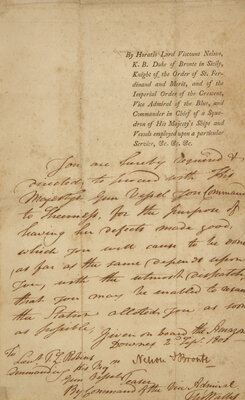 By Horatio Lord Viscount Nelson,
K. B. Duke of Bronte in Sicily,
Knight of the Order of St. Ferdinand and Merit, and of
the Imperial Order of the Crescent,
Vice Admiral of the Blue, and
Commander in Chief of a Squadron of His Majesty's Ships and
Vessels employed upon a particular
Service, &c. &c. &c.
You are hereby required &
directed, to proceed with His
Majesty's Gun Vessel you Command
to Sheerness, for the purpose of
having her defects made good,
which you will cause to be done
as far as the same depends upon
you, with the utmost dispatch
that you may be enabled to
the Station allotted you, as soon
as possible, Given on board the Amazon
Downs 2d Sept. 1801
Nelson & Bronte
To
Lieut.
Commander His Maj
Gun Vessel
By Command of the Vice Admiral